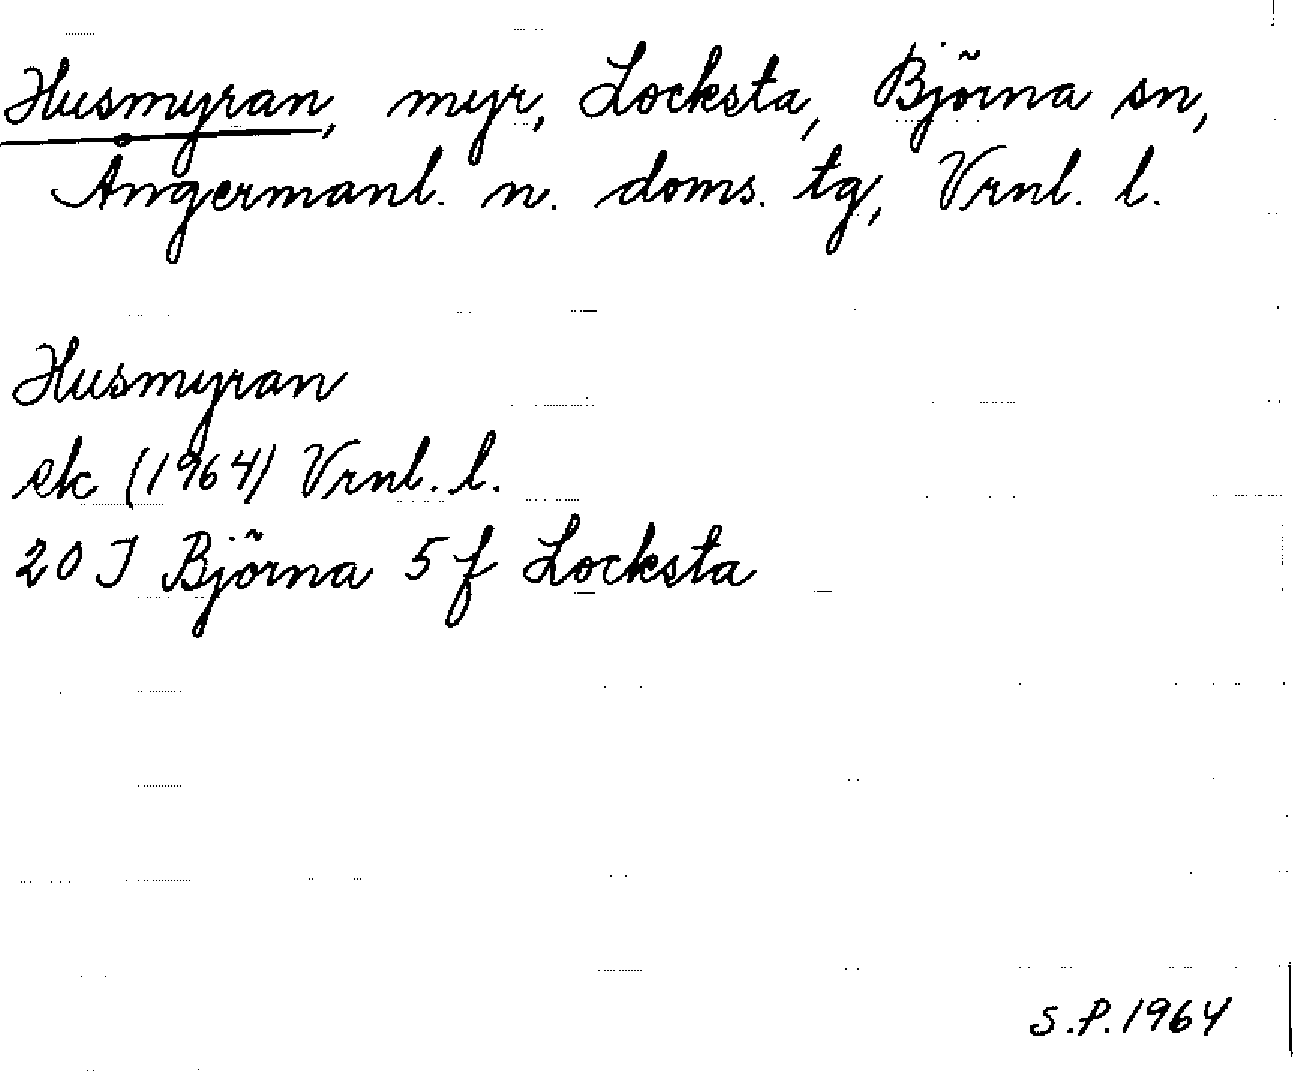 Husmyran, myr, Locksta, Björna sn,
Ångermanl. n. doms. tg, Vrnl. l.
Husmyran
ek (1964) Vrnl. l.
20 J Björna 5 f Locksta
S.P. 1964